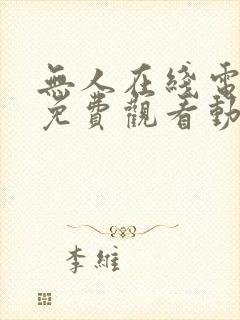 無人在綫電
免費觀看動
李維